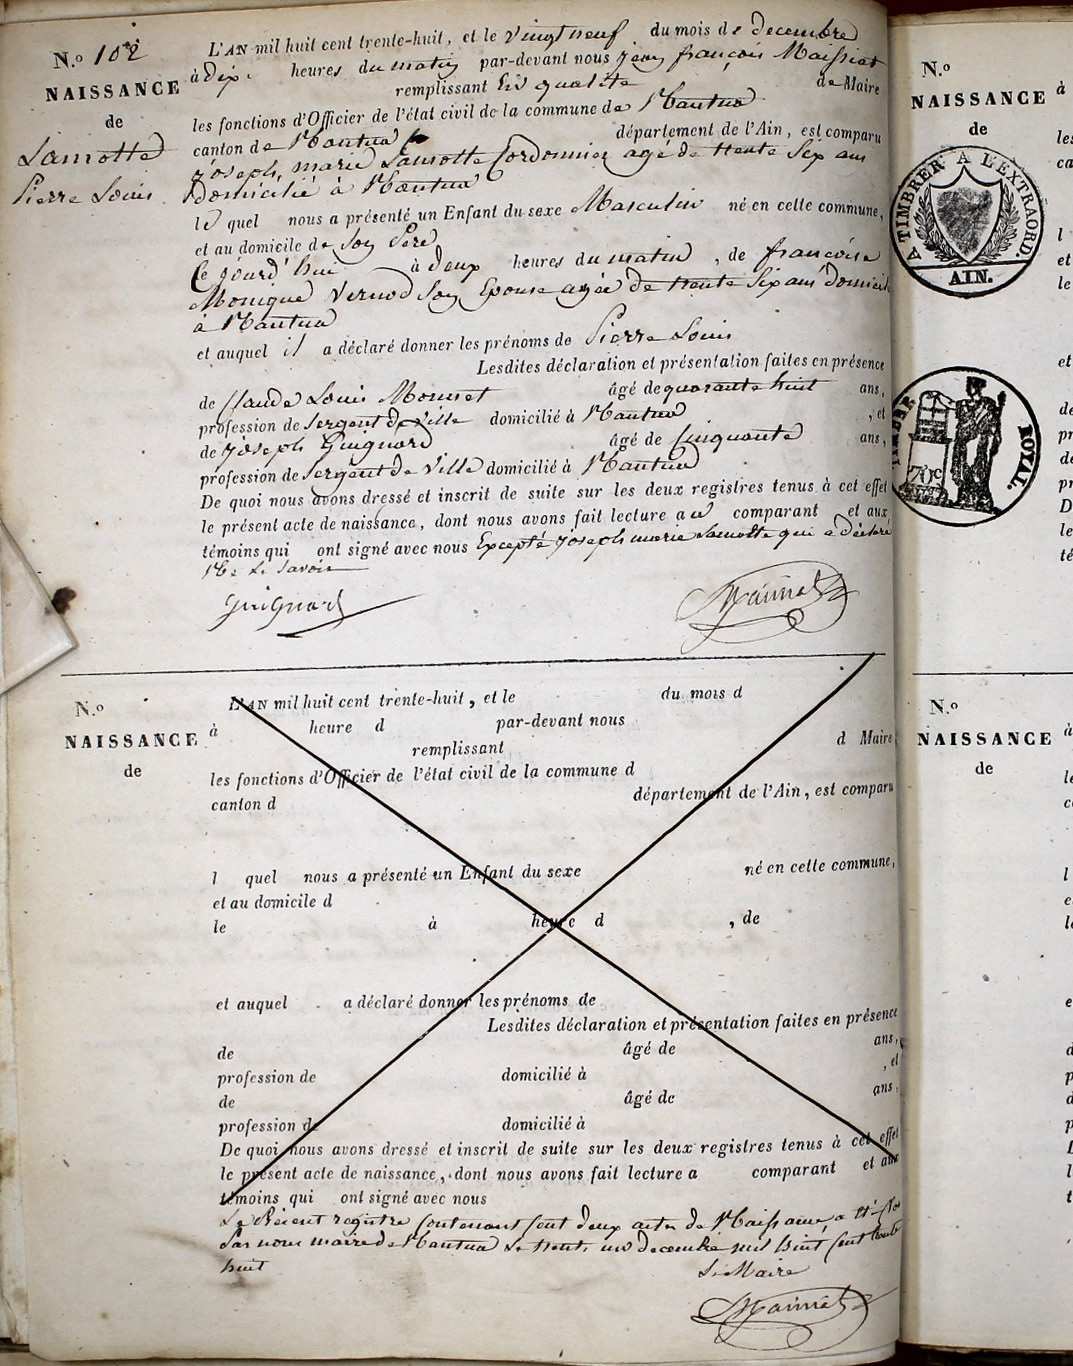 N.º 102
NAISSANCE
de
Lamotte
Pierre Louis
L'AN mil huit cent trente-huit, et le vingt neuf du mois de decembre
à dix heures du matin par-devant nous jean françois Maissiat
remplissant En qualité de Maire
les fonctions d'Officier de l'état civil de la commune de Nantua
canton de Nantua département de l'Ain, est comparu
joseph, marie Lamotte Cordonnier agé de trente Six ans
Domicilié à Nantua
le quel nous a présenté un Enfant du sexe Masculin né en cette commune,
et au domicile de Son Père
Ce jourd'hui à deux heures du matin, de françoise
Monique Vernod Son Epouse agée de trente Six ans Domicilié
à Nantua
et auquel il a déclaré donner les prénoms de Pierre Louis
Lesdites déclaration et présentation faites en présence
de Claude Louis Monnet âgé de quarante huit ans,
profession de Sergent de Ville domicilié à Nantua, et
de joseph Guignard âgé de Cinquante ans,
profession de Sergent de Ville domicilié à Nantua
De quoi nous avons dressé et inscrit de suite sur les deux registres tenus à cet effet
le présent acte de naissance, dont nous avons fait lecture au comparant et aux
témoins qui ont signé avec nous Excepté joseph marie Lamotte qui a déclaré
Ne Le Savoir
Guignard
N.º
NAISSANCE
de
L'AN mil huit cent trente-huit, et le du mois d
à heure d par-devant nous
remplissant d Maire
les fonctions d'Officier de l'état civil de la commune d
canton d département de l'Ain, est comparu
l quel nous a présenté un Enfant du sexe né en cette commune,
et au domicile d
le à heure d , de
et auquel a déclaré donner les prénoms de
Lesdites déclaration et présentation faites en présence
de âgé de ans,
profession de domicilié à , et
de âgé de ans,
profession de domicilié à
De quoi nous avons dressé et inscrit de suite sur les deux registres tenus à cet effet
le présent acte de naissance, dont nous avons fait lecture a comparant et aux
témoins qui ont signé avec nous
Le Présent registre Contenant Cent deux actes de Naissance, a été Clos
Par nous maire de Nantua Le trente un decembre mil huit Cent trente
huit
Le Maire
N.º
NAISSANCE
de
A TIMBRER A L'EXTRAORD.
AIN.
TIMBRE ROYAL.
N.º
NAISSANCE
de